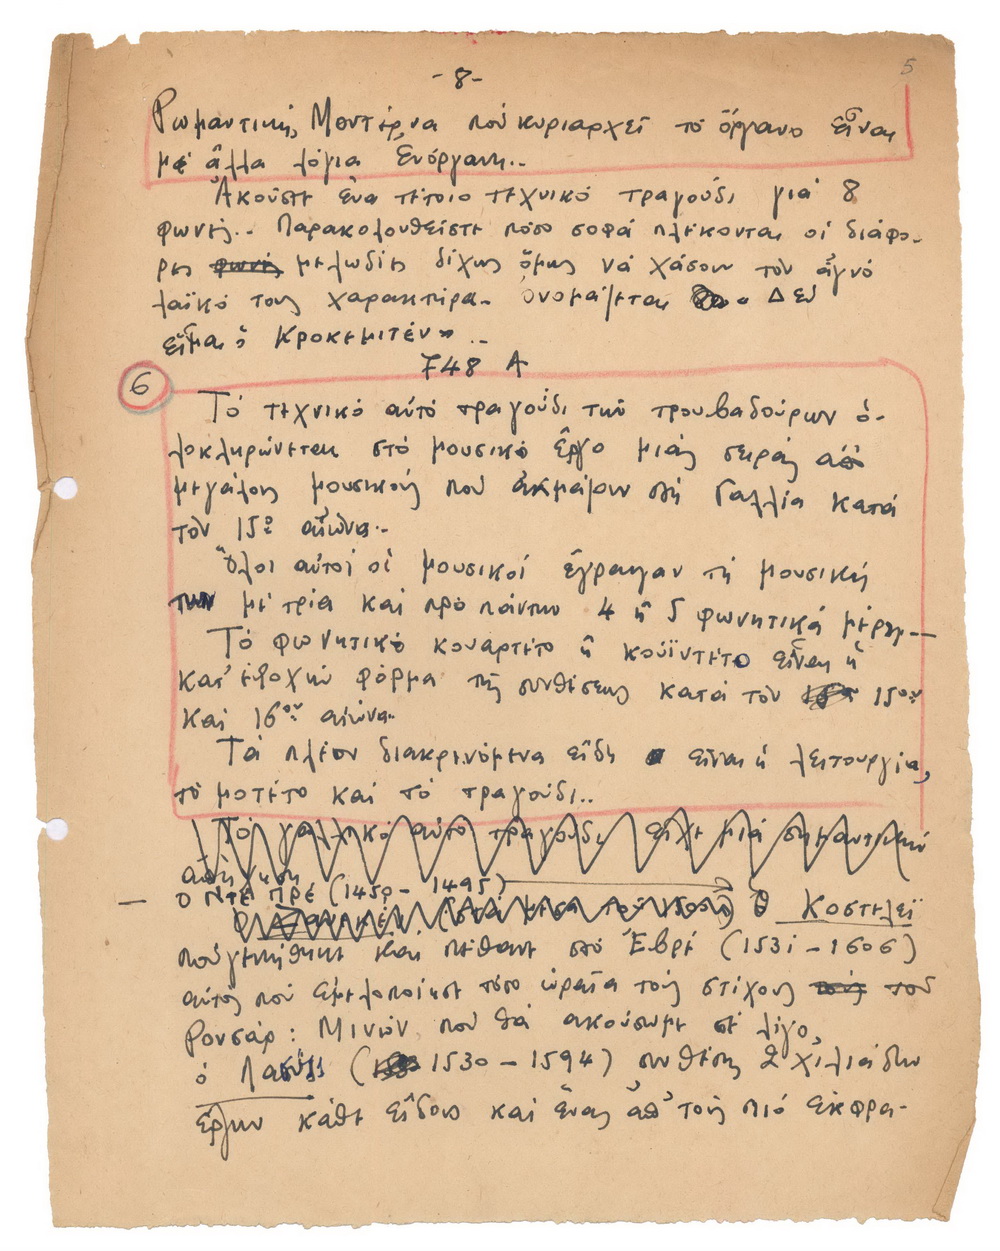 5
-8-
Ρωμαντική, Μοντέρνα πού κυριαρχεῖ τό ὄργανο εἶναι
μέ ἄλλα λόγια Ἐνόργανη..
Ἀκοῦστε ἕνα τέτοιο τεχνικό τραγούδι γιά 8
φωνές.. Παρακολουθεῖστε πόσο σοφά πλέκονται οἱ διάφο-
ρες φωνές μελωδίες δίχως ὅμως νά χάσουν τόν ἁγνό
λαϊκό τους χαρακτῆρα. Ὀνομάζεται « Δέν
εἶμαι ὁ Κροκεμιτέν» ..
748 Α
6
Τό τεχνικό αὐτό τραγούδι τῶν τρουβαδούρων ὁ-
λοκληρώνεται στό μουσικό ἔργο μιᾶς σειρᾶς ἀπό
μεγάλους μουσικούς πού ἀκμάζουν στή Γαλλία κατά
τόν 15ο αἰῶνα..
Ὅλοι αὐτοί οἱ μουσικοί ἔγραψαν τή μουσική
των μέ τρία καί πρό πάντων 4 ἤ 5 φωνητικά μέρη.
Τό φωνητικό κουαρτέτο ἤ κουϊντέτο εἶναι ἡ
κατ' ἐξοχήν φόρμα τῆς συνθέσεως κατά τόν 15ον
καί 16ον αἰῶνα.
Τά πλέον διακρινόμενα εἴδη εἶναι ἡ λειτουργία,
τό μοτέτο καί τό τραγούδι..
Τό γαλλικό αὐτό τραγούδι εἶχε μιά σημαντική
ὁ Ντέ Πρέ (1450 - 1495)
Ὁ Κοστελεΐ
πού γεννήθηκε καί πέθανε στό Ἐβρέ (1531 - 1606)
αὐτός πού ἐμελοποίησε τόσο ὡραῖα τούς στίχους τούς τοῦ
Ρονσάρ : Μινιόν πού θά ἀκούσωμε σέ λίγο,
ὁ Λασύς (1530 - 1594) συνθέτης 2 χιλιάδων
ἔργων κάθε εἴδους καί ἕνας ἀπ' τούς πιό ἐκφρα-